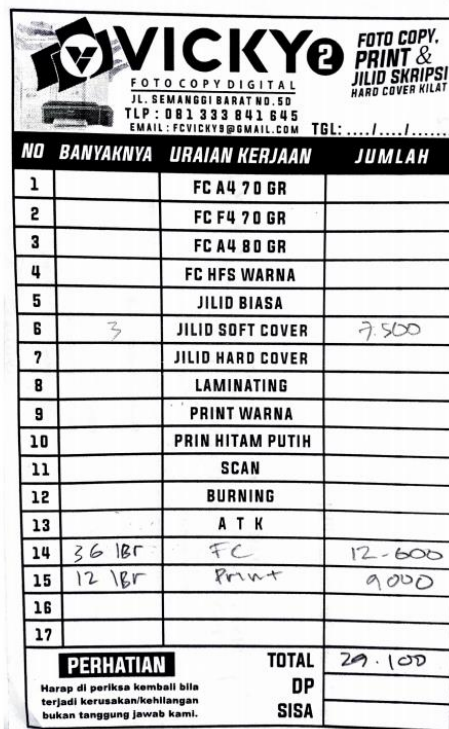 VICKY 2
FOTO COPY DIGITAL
JL. SEMANGGI BARAT NO.5D
TLP : 081 333 841 645
EMAIL : FCVICKY9@GMAIL.COM
FOTO COPY,
PRINT &
JILID SKRIPSI
HARD COVER KILAT
TGL: ..../..../......
NO BANYAKNYA URAIAN KERJAAN JUMLAH
1 FC A4 70 GR
2 FC F4 70 GR
3 FC A4 80 GR
4 FC HFS WARNA
5 JILID BIASA
6 3 JILID SOFT COVER 7.500
7 JILID HARD COVER
8 LAMINATING
9 PRINT WARNA
10 PRIN HITAM PUTIH
11 SCAN
12 BURNING
13 A T K
14 36 lBr FC 12-600
15 12 lBr Print 9000
16
17
PERHATIAN
Harap di periksa kembali bila
terjadi kerusakan/kehilangan
bukan tanggung jawab kami.
TOTAL 29.100
DP
SISA